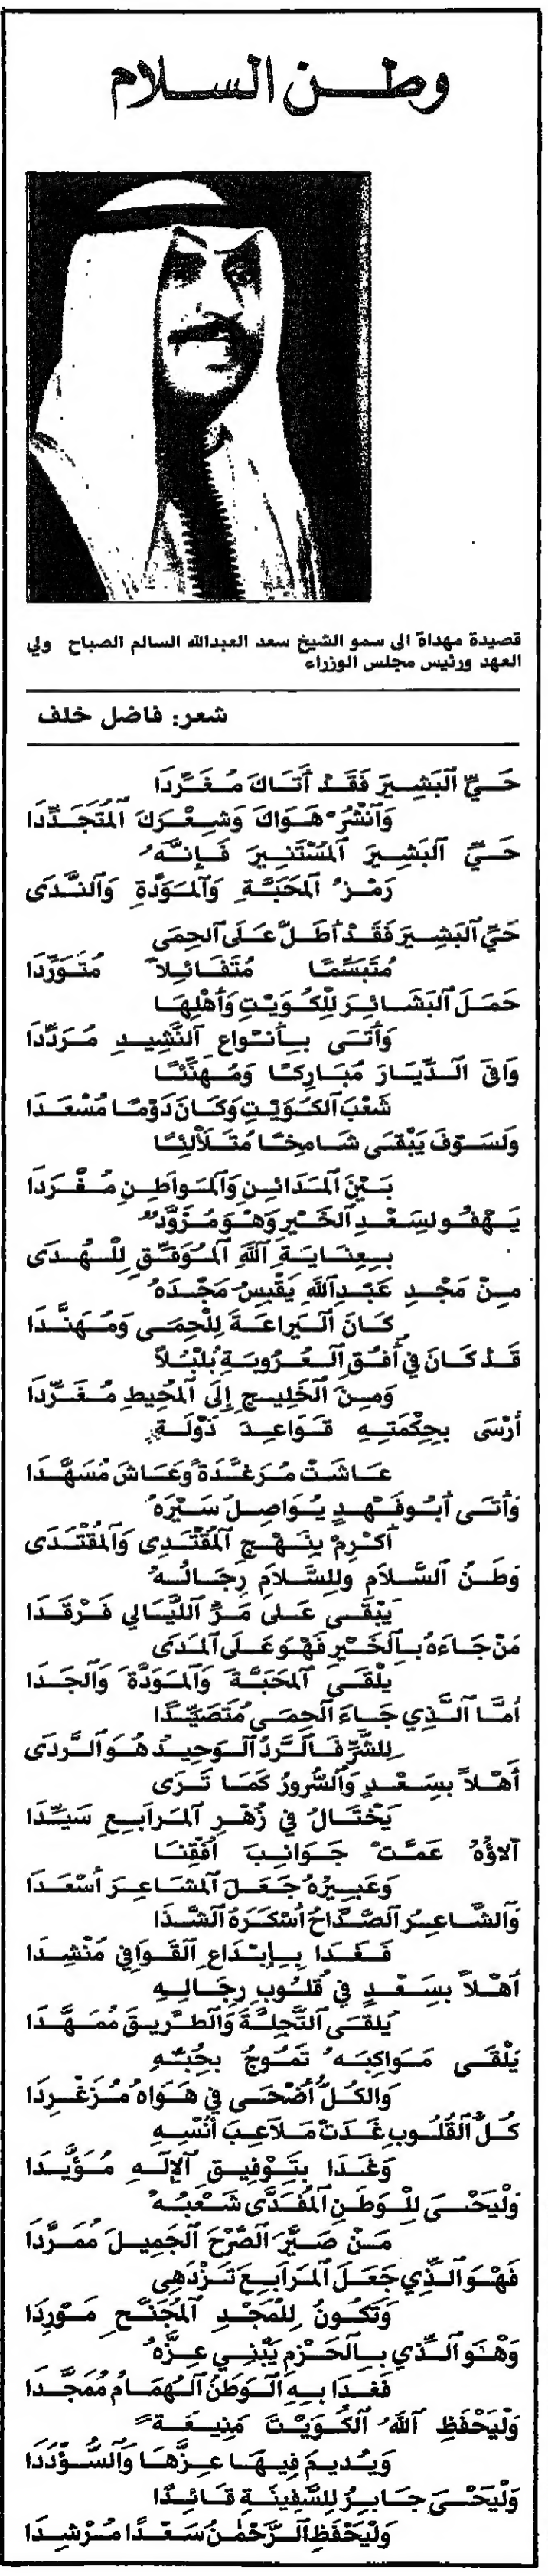 وطن السلام
قصيدة مهداة الى سمو الشيخ سعد العبدالله السالم الصباح ولي
العهد ورئيس مجلس الوزراء
شعر: فاضل خلف
حَيِّ ٱلبَشِيرَ فَقَدْ أَتَاكَ مُغَرِّدَا
وَٱنْشُرْ هَوَاكَ وَشِعْرَكَ ٱلمُتَجَدِّدَا
حَيِّ ٱلبَشِيرَ ٱلمُسْتَنِيرَ فَإِنَّهُ
رَمْزُ ٱلمَحَبَّةِ وَٱلمَوَدَّةِ وَٱلنَّدَى
حَيِّ ٱلبَشِيرَ فَقَدْ أَطَلَّ عَلَى ٱلحِمَى
مُتَبَسِّمًا مُتَفَائِلاً مُتَوَرِّدَا
حَمَلَ ٱلبَشَائِرَ لِلْكُوَيْتِ وَأَهْلِهَا
وَأَتَى بِأَنْوَاعِ ٱلنَّشِيدِ مُرَدِّدَا
وَافَى ٱلدِّيَارَ مُبَارِكًا وَمُهَنِّئًا
شَعْبَ ٱلكُوَيْتِ وَكَانَ دَوْمًا مُسْعَدَا
وَلَسَوْفَ يَبْقَى شَامِخًا مُتَلَأْلِئًا
بَيْنَ ٱلمَدَائِنِ وَٱلمَوَاطِنِ مُفْرَدَا
يَهْفُو لِسَعْدِ ٱلخَيْرِ وَهْوَ مُزَوَّدٌ
بِعِنَايَةِ ٱللَّهِ ٱلمُوَفِّقِ لِلْهُدَى
مِنْ مَجْدِ عَبْدِ ٱللَّهِ يَقْبِسُ مَجْدَهُ
كَانَ ٱلْيَرَاعَةَ لِلْحِمَى وَمُهَنَّدَا
قَدْ كَانَ فِي أُفُقِ ٱلعُرُوبَةِ بُلْبُلاً
وَمِنَ ٱلخَلِيجِ إِلَى ٱلمُحِيطِ مُغَرِّدَا
أَرْسَى بِحِكْمَتِهِ قَوَاعِدَ دَوْلَةٍ
عَاشَتْ مُرَغَّدَةً وَعَاشَ مُسَهَّدَا
وَأَتَى أَبُو فَهْدٍ يُوَاصِلُ سَيْرَهُ
أَكْرِمْ بِنَهْجِ ٱلمُقْتَدِى وَٱلمُقْتَدَى
وَطَنُ ٱلسَّلَامِ وَلِلسَّلَامِ رِجَالُهُ
يَبْقَى عَلَى مَرِّ ٱللَّيَالِي فَرْقَدَا
مَنْ جَاءَهُ بِٱلخَيْرِ فَهْوَ عَلَى ٱلمَدَى
يَلْقَى ٱلمَحَبَّةَ وَٱلمَوَدَّةَ وَٱلجَدَا
أَمَّا ٱلَّذِي جَاءَ ٱلحِمَى مُتَصَيِّدًا
لِلشَّرِّ فَٱلرَّدُّ ٱلوَحِيدُ هُوَ ٱلرَّدَى
أَهْلاً بِسَعْدٍ وَٱلسُّرُورُ كَمَا تَرَى
يَخْتَالُ فِي زُهْرِ ٱلمَرَابِعِ سَيِّدَا
آلَاؤُهُ عَمَّتْ جَوَانِبَ أُفْقِنَا
وَعَبِيرُهُ جَعَلَ ٱلمَشَاعِرَ أَسْعَدَا
وَٱلشَّاعِرُ ٱلصَّدَّاحُ أَسْكَرَهُ ٱلشَّذَا
فَغَدَا بِإِبْدَاعِ ٱلقَوَافِي مُنْشِدَا
أَهْلاً بِسَعْدٍ فِي قُلُوبِ رِجَالِهِ
يَلْقَى ٱلتَّجِلَّةَ وَٱلطَّرِيقَ مُمَهَّدَا
يَلْقَى مَوَاكِبَهُ تَمُوجُ بِحُبِّهِ
وَٱلكُلُّ أَضْحَى فِي هَوَاهُ مُزَغْرِدَا
كُلُّ ٱلقُلُوبِ غَدَتْ مَلَاعِبَ أُنْسِهِ
وَغَدَا بِتَوْفِيقِ ٱلإِلَهِ مُؤَيَّدَا
وَلْيَحْيَ لِلْوَطَنِ ٱلمُفَدَّى شَعْبُهُ
مَنْ صَيَّرَ ٱلصَّرْحَ ٱلجَمِيلَ مُمَرَّدَا
فَهْوَ ٱلَّذِي جَعَلَ ٱلمَرَابِعَ تَزْدَهِي
وَتَكُونُ لِلْمَجْدِ ٱلمُجَنَّحِ مَوْرِدَا
وَهْوَ ٱلَّذِي بِٱلحَزْمِ يَبْنِي عِزَّهُ
فَغَدَا بِهِ ٱلوَطَنُ ٱلهُمَامُ مُمَجَّدَا
وَلْيَحْفَظِ ٱللَّهُ ٱلكُوَيْتَ مَنِيعَةً
وَيُدِيمَ فِيهَا عِزَّهَا وَٱلسُّؤْدَدَا
وَلْيَحْيَ جَابِرُ لِلسَّفِينَةِ قَائِدًا
وَلْيَحْفَظِ ٱلرَّحْمٰنُ سَعْدًا مُرْشِدَا